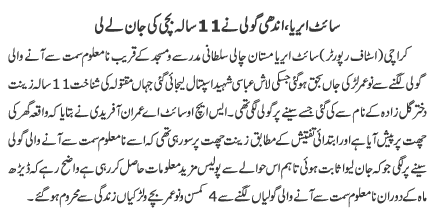 سائٹ ایریا، اندھی گولی نے 11 سالہ بچی کی جان لے لی
کراچی (اسٹاف رپورٹر) سائٹ ایریا مستان چالی سلطانی مدرسے و مسجد کے قریب نامعلوم سمت سے آنے والی
گولی لگنے سے نوعمر لڑکی جاں بحق ہوگئی جسکی لاش عباسی شہید اسپتال لیجائی گئی جہاں مقتولہ کی شناخت 11 سالہ زینت
دختر گل زادہ کے نام سے کی گئی جسے سینے پر گولی لگی تھی۔ ایس ایچ او سائٹ اے عمران آفریدی نے بتایا کہ واقعہ گھر کی
چھت پر پیش آیا ہے اور ابتدائی تفتیش کے مطابق زینت چھت پر سو رہی تھی کہ اسے نامعلوم سمت سے آنے والی گولی
سینے پر لگی جو کہ جان لیوا ثابت ہوئی تاہم اس حوالے سے پولیس مزید معلومات حاصل کر رہی ہے واضح رہے کہ ڈیڑھ
ماہ کے دوران نامعلوم سمت سے آنے والی گولیاں لگنے سے 4 کمسن و نوعمر بچے و لڑکیاں زندگی سے محروم ہوگئے۔